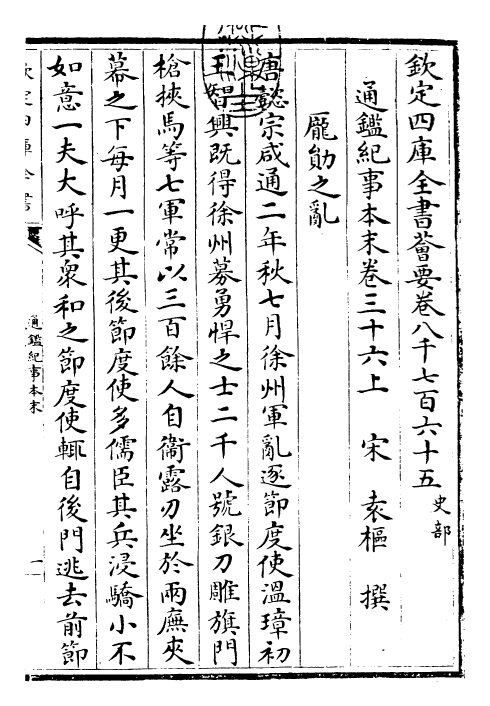 欽定四庫全書薈要卷八千七百六十五 史部
通鑑紀事本末卷三十六上 宋 袁樞 撰
龎勛之亂
唐懿宗咸通二年秋七月徐州軍亂逐節度使溫璋初
王智興既得徐州募勇悍之士二千人號銀刀雕旗門
槍挾馬等七軍常以三百餘人自衞露刃坐於兩廡夾
幕之下每月一更其後節度使多儒臣其兵浸驕小不
如意一夫大呼其衆和之節度使輒自後門逃去前節
欽定四庫全書
通鑑紀事本末